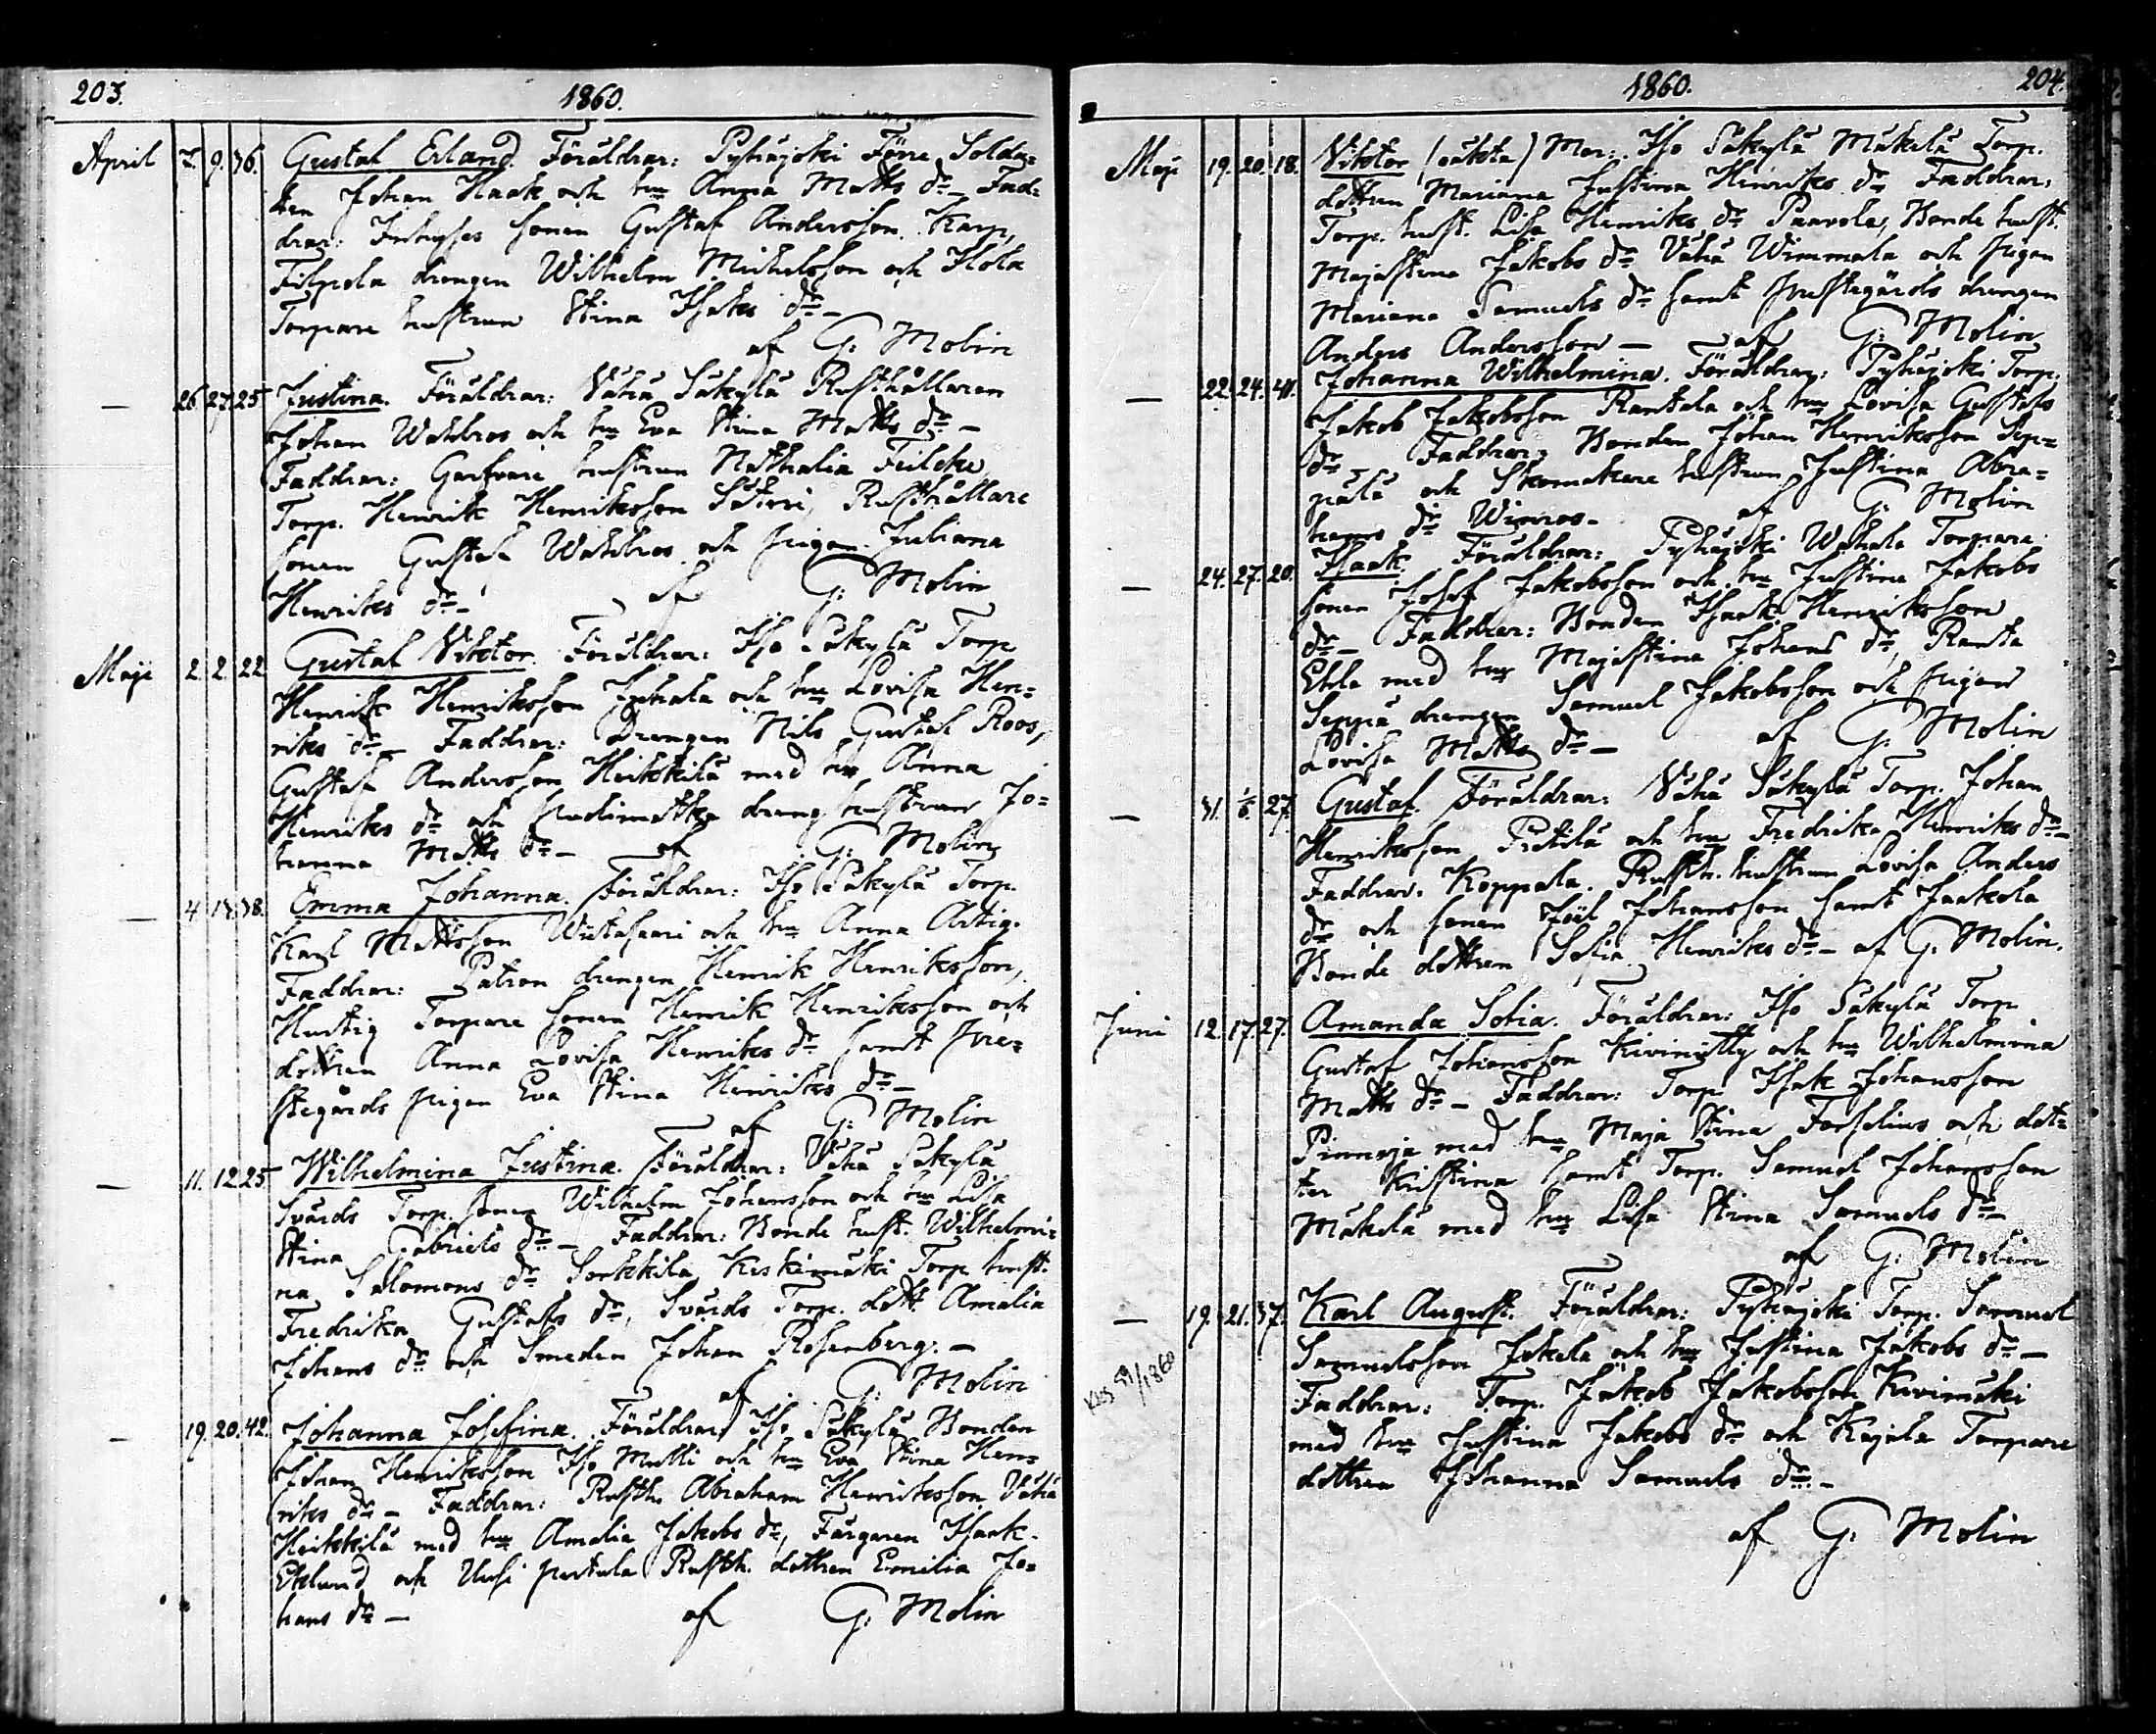 203.
1860.
April 7. 9. 36. Gustaf Erland. Föräldrar: Pyhäjoki Förre Solda=
ten Johan Haak och hu Anna Matts dr – Fad=
drar: Inhyses sonen Gustaf Andersson Karp,
Filpola drengen Wilhelm Michelsson och Hola
Torpare hustrun Stina Isaks dr –
af G: Molin
— 26. 27. 25 Justina. Föräldrar: Vähä Säkylä Rusthållaren
Johan Wahlros och hu Eva Stina Matts dr –
Faddrar: Garfvare hustrun Nathalia
Torp. Henrik Henriksson Säteri, Rusthållare
sonen Gustaf Wahlros och pigan Juliana
Henriks dr – af G: Molin
Maji 2. 2. 22 Gustaf Viktor. Föräldrar: Iso Säkylä Torp
Henrik Henriksson Juhala och hu Lovisa Hen=
riks dr – Faddrar: Drengen Nils Gustaf Roos,
Gustaf Andersson Heikkilä med hu Anna
Henriks dr och dreng hustrun Jo=
hanna Matts dr – af G: Molin
— 4 13. 38. Emma Johanna. Föräldrar: Iso Säkylä Torp.
Karl Mattsson Wiitasaari och hu Anna Artig.
Faddrar: Patron drengen Henrik Henriksson,
Hurtig Torpare sonen Henrik Henriksson och
dottren Anna Lovisa Henriks dr samt Pre=
stegårds pigan Eva Stina Henriks dr –
af G: Molin
— 11. 12. 25 Wilhelmina Justina. Föräldrar: Vähä Säkylä
Svärds Torp. sonen Wilhelm Johansson och hu Lisa
Stina Gabriels dr – Faddrar: Bonde hust. Wilhelmi=
na Salomons dr Sorkkila, Keskimäki Torp hust.
Fredrika Gustafs dr, Svärds Torp. dott. Amalia
Johans dr och Smeden Johan Rosenberg. –
af G: Molin
— 19. 20. 42. Johanna Josefina. Föräldrar: Iso Säkylä Bonden
Johan Henriksson Iso Mulli och hu Eva Stina Hen=
riks dr – Faddrar: Rusth. Abraham Henriksson Vähä
Heikkilä med hu Amalia Jakobs dr, Färgaren Isaak
Eklund och Uusi pertula Rusth. dottren Emilia Jo=
hans dr – af G: Molin
1860.
204.
Maji 19. 20. 18. Viktor (oäkta) Mor: Iso Säkylä Mäkelä Torp.
dottren Mariana Justina Henriks dr Faddrar:
Torp. hust. Lisa Henriks dr Paavola, Bonde hust.
Majastina Jakobs dr Vähä Wimmala och pigan
Mariana Samuels dr samt Prestegårds drengen
Anders Andersson – af G: Molin
— 22. 24. 41. Johanna Wilhelmina. Föräldrar: Pyhäjoki Torp.
Jakob Jakobsson Rantala och hu Lovisa Gustafs
dr – Faddrar: Bonden Johan Henriksson Sep=
pälä och Skomakare hustrun Justina Abra=
hams dr Winros. af G: Molin
— 24. 27. 20. Isaak. Föräldrar: Pyhäjoki Wahala Torpare
sonen Josef Jakobsson och hu Justina Jakobs
dr – Faddrar: Bonden Isaak Henriksson
Eklä med hu Majastina Johans dr, Ranta
Seppä drengen Samuel Jakobsson och pigan
Lovisa Matts dr – af G: Molin
— 31. 1/6. 27. Gustaf. Föräldrar: Vähä Säkylä Torp. Johan
Henriksson Pietilä och hu Fredrika Henriks dr –
Faddrar: Koppala Rusth. hustrun Lovisa Anders
dr och sonen Joel Johansson samt Jaakola
Bonde dottren Sofia Henriks dr – af G: Molin.
Juni 12. 17. 27. Amanda Sofia. Föräldrar: Iso Säkylä Torp
Gustaf Johansson Kivinitty och hu Wilhelmina
Matts dr – Faddrar: Torp Isak Johansson
Pinnoja med hu Maja Stina Forselius och dot=
ter Kristina samt Torp. Samuel Johansson
Mäkelä med hu Lisa Stina Samuels dr –
af G: Molin
— 19. 21. 37. Karl August. Föräldrar: Pyhäjoki Torp. Samuel
Samuelsson Jokela och hu Justina Jakobs dr –
Faddrar: Torp. Jakob Jakobsson Kivimäki
med hu Justina Jakobs dr och Kajala Torpare
dottren Johanna Samuels dr. –
af G: Molin